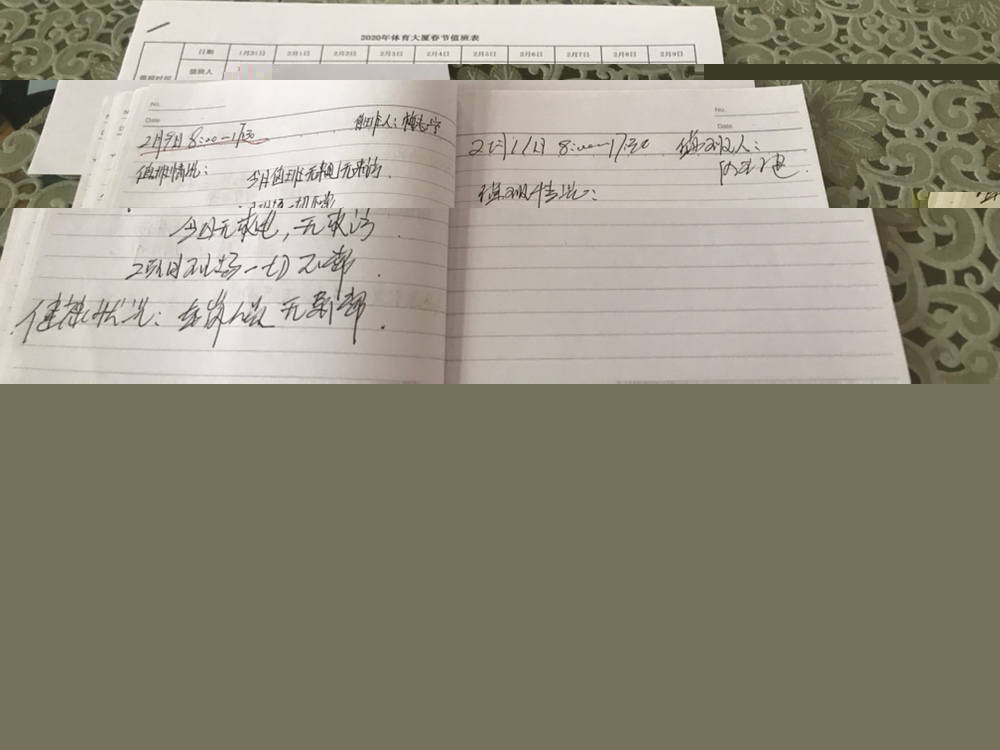 2020年体育大厦春节值班表
日期 1月31日 2月1日 2月2日 2月3日 2月4日 2月5日 2月6日 2月7日 2月8日 2月9日
值班时间 值班人
No.
Date
2月9日 8:00-17:30 值班人:
值班情况: 今日值班无来电,无来访.
现场一切正常
今日无来电,无来访.
工程项目现场一切正常.
健康状况:在岗人员无异常.
No.
Date
2月11日 8:00-17:30 值班人:
值班情况: